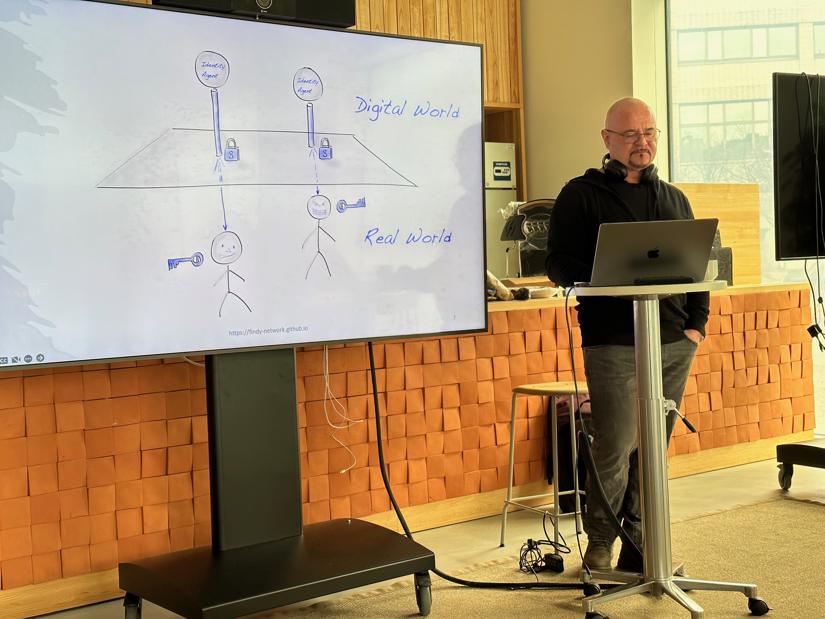 Identity
Agent
Identity
Agent
Digital World
S
S
Real World
https://findy-network.github.io